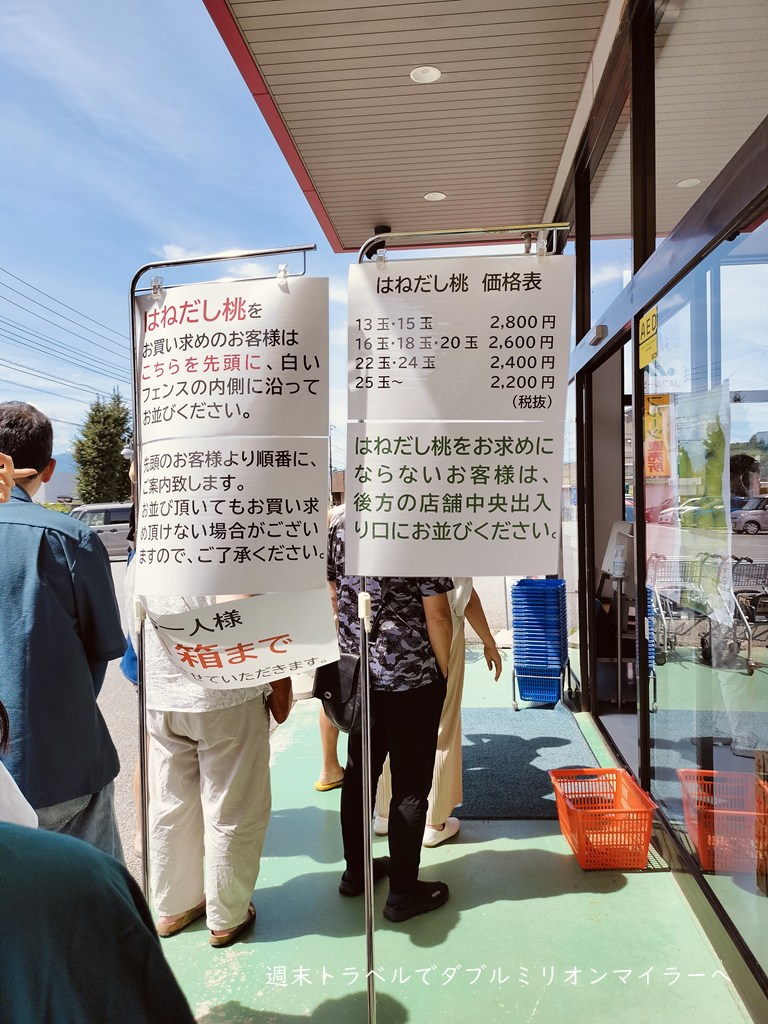 はねだし桃を
お買い求めのお客様は
こちらを先頭に、白い
フェンスの内側に沿って
お並びください。
先頭のお客様より順番に、
ご案内致します。
お並び頂いてもお買い求
め頂けない場合がござい
ますので、ご了承ください。
一人様
箱まで
せていただきます。
はねだし桃 価格表
13玉・15玉 2,800円
16玉・18玉・20玉 2,600円
22玉・24玉 2,400円
25玉〜 2,200円
(税抜)
はねだし桃をお求めに
ならないお客様は、
後方の店舗中央出入
り口にお並びください。
AED
週末トラベルでダブルミリオンマイラーへ